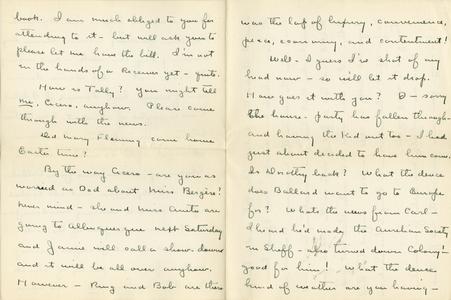 book. I am much obliged to you for
attending to it - but will ask you to
please let me have the bill. I'm not
in the hands of a Receiver yet - quite.
How is Tally? You might tell
me, Cicero, anyhow. Please come
through with the news.
Did Mary Fleming come home
Easter time?
By the way Cicero - are you as
worried as Dad about Miss Bergère?
Never mind - she and Miss Anita are
going to Albuquerque next Saturday
and Jamie will call a show-down
and it will be all over anyhow.
However - Ring and Bob are there
was the lap of luxury, convenience,
peace, economy, and contentment!
Well - I guess I've shot off my
head now - so will let it drop.
How goes it with you? D- sorry
the house-party has fallen through -
and having the Kid out too - I had
just about decided to have him come.
Is Dorothy back? What the deuce
does Ballard want to go to Europe
for? Whats the news from Carl -
I heard he'd made the Aurelian Society
in Sheff - also turned down Colony!
good for him! What the deuce
kind of weather are you having -